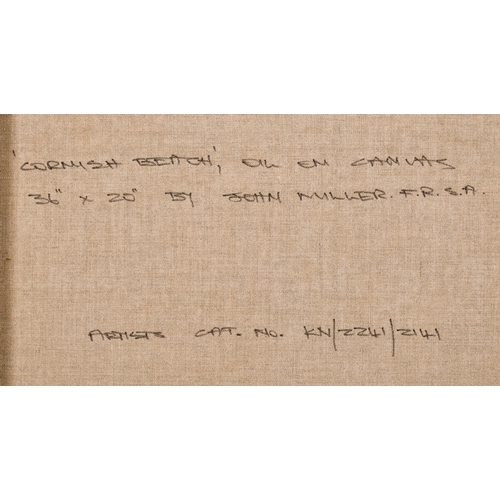 'CORNISH BEACH', OIL ON CANVAS
36" x 20" BY JOHN MILLER. F.R.S.A.
ARTISTS CAT. NO. KN/2241/2141